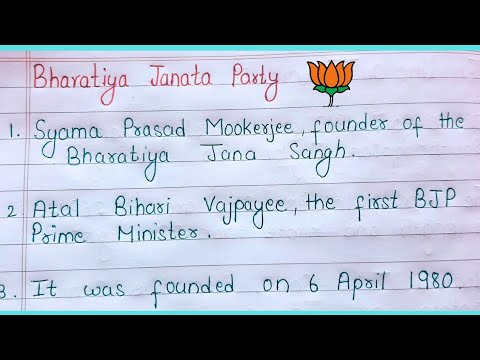 Bharatiya Janata Party
1. Syama Prasad Mookerjee, founder of the
Bharatiya Jana Sangh.
2 Atal Bihari Vajpayee, the first BJP
Prime Minister.
3. It was founded on 6 April 1980.